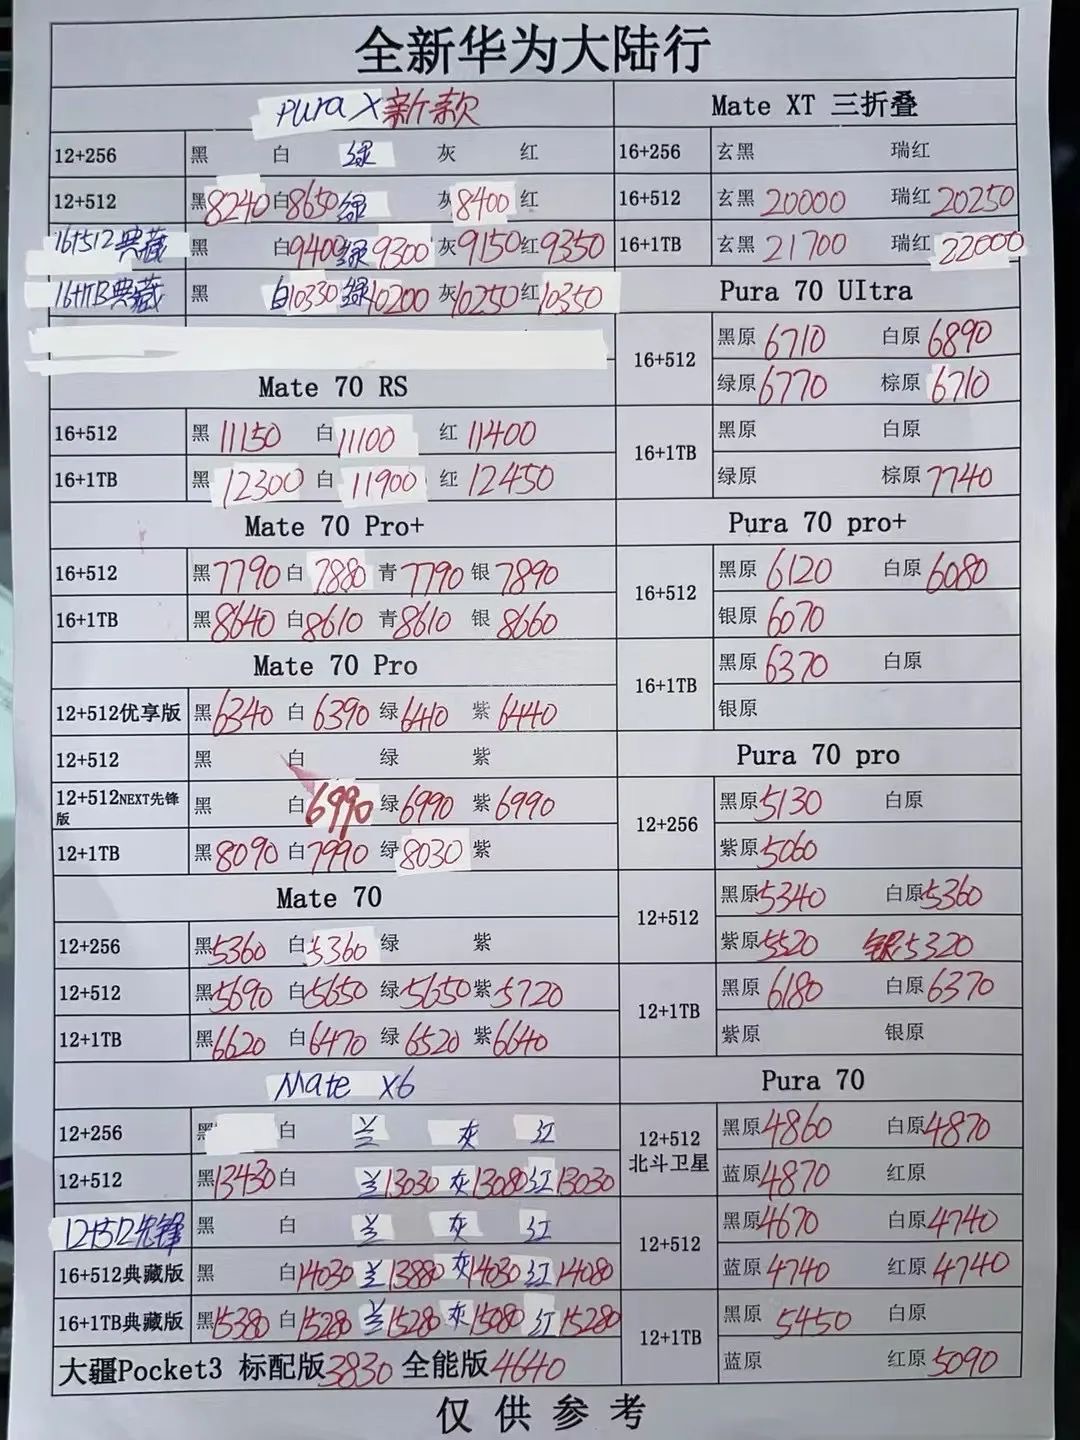 全新华为大陆行
Pura X新款
12+256 黑 白 绿 灰 红
12+512 黑8240 白8650 绿 灰8400 红
16+512典藏 黑 白9400 绿9300 灰9150 红9350
16+1TB典藏 黑 白10330 绿10200 灰10250 红10350
Mate 70 RS
16+512 黑 11150 白 11100 红 11400
16+1TB 黑 12300 白 11900 红 12450
Mate 70 Pro+
16+512 黑7790 白 7880 青 7790 银 7890
16+1TB 黑8640 白8610 青8610 银 8660
Mate 70 Pro
12+512优享版 黑6340 白 6390 绿6410 紫 6440
12+512 黑 白 绿 紫
12+512NEXT先锋版 黑 白6990 绿6990 紫6990
12+1TB 黑8090 白7990 绿8030 紫
Mate 70
12+256 黑5360 白5360 绿 紫
12+512 黑5690 白5650 绿5650 紫5720
12+1TB 黑6620 白6470 绿6520 紫6640
Mate X6
12+256 黑 白 兰 灰 红
12+512 黑13430 白 兰13030 灰13080 红13030
12+512先锋 黑 白 兰 灰 红
16+512典藏版 黑 白14030 兰13880 灰14030 红14080
16+1TB典藏版 黑15380 白15280 兰15280 灰15080 红15280
大疆Pocket3 标配版3830 全能版4640
Mate XT 三折叠
16+256 玄黑 瑞红
16+512 玄黑 20000 瑞红 20250
16+1TB 玄黑 21700 瑞红 22000
Pura 70 UItra
16+512 黑原 6710 白原 6890
绿原6770 棕原 6710
16+1TB 黑原 白原
绿原 棕原 7740
Pura 70 pro+
16+512 黑原 6120 白原6080
银原 6070
16+1TB 黑原 6370 白原
银原
Pura 70 pro
12+256 黑原5130 白原
紫原5060
12+512 黑原5340 白原5360
紫原5520 银5320
12+1TB 黑原 6180 白原6370
紫原 银原
Pura 70
12+512
北斗卫星 黑原4860 白原4870
蓝原4870 红原
12+512 黑原4670 白原4740
蓝原 4740 红原 4740
12+1TB 黑原 5450 白原
蓝原 红原 5090
仅供参考